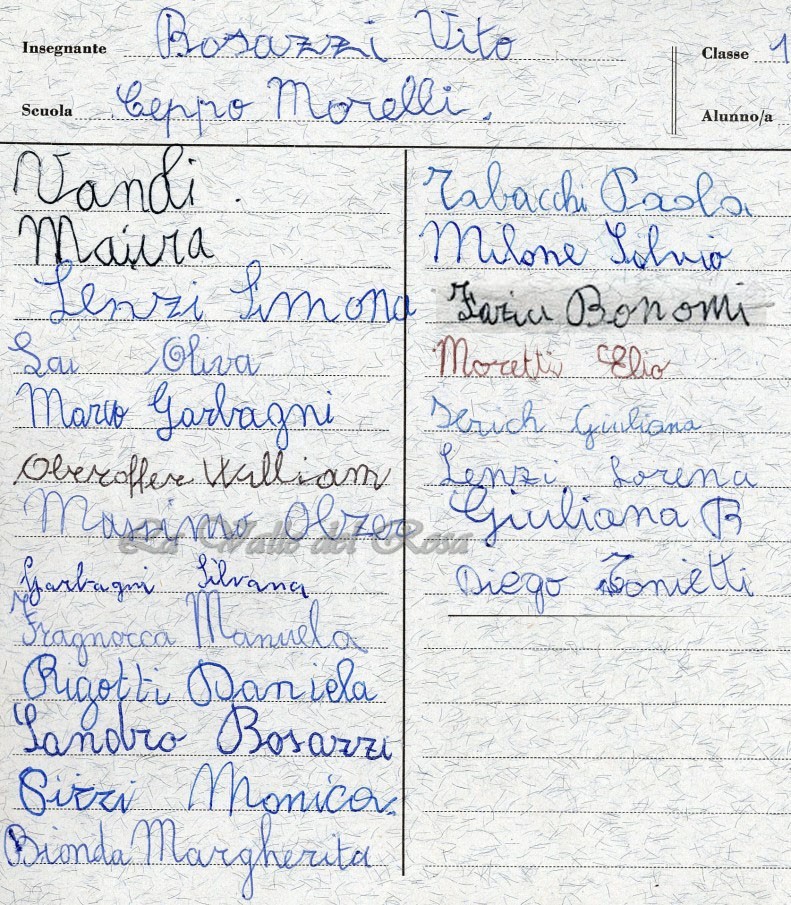 Insegnante Bosazzi Vito
Classe 1
Scuola Ceppo Morelli.
Alunno/a
Vandi.
Maura
Lenzi Simona
Lai Oliva
Marco Garbagni
Oberoffer William
Massimo Olzer
La Valle del Rosa
Garbagni Silvana
Fragnocca Manuela
Rigotti Daniela
Sandro Bosazzi
Pizzi Monica.
Bionda Margherita
Tabacchi Paola
Milone Silvio
Bonomi
Moretti Elio
Giuliana
Lenzi Lorena
Giuliana B
Diego Tonietti